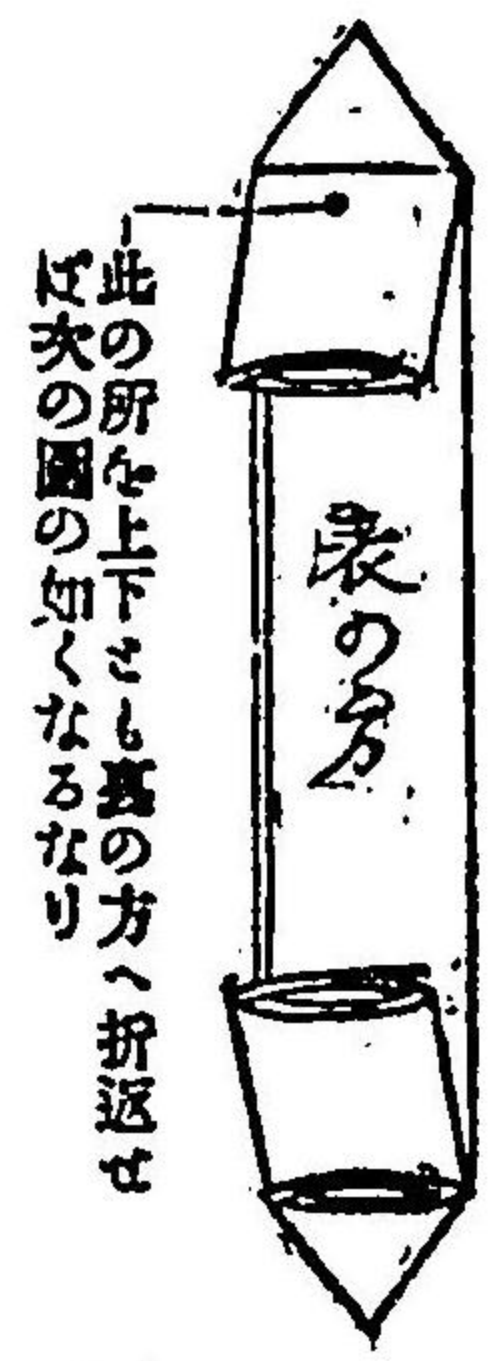 表の方
此の所を上下とも裏の方へ折返せ
ば次の圖の如くなるなり